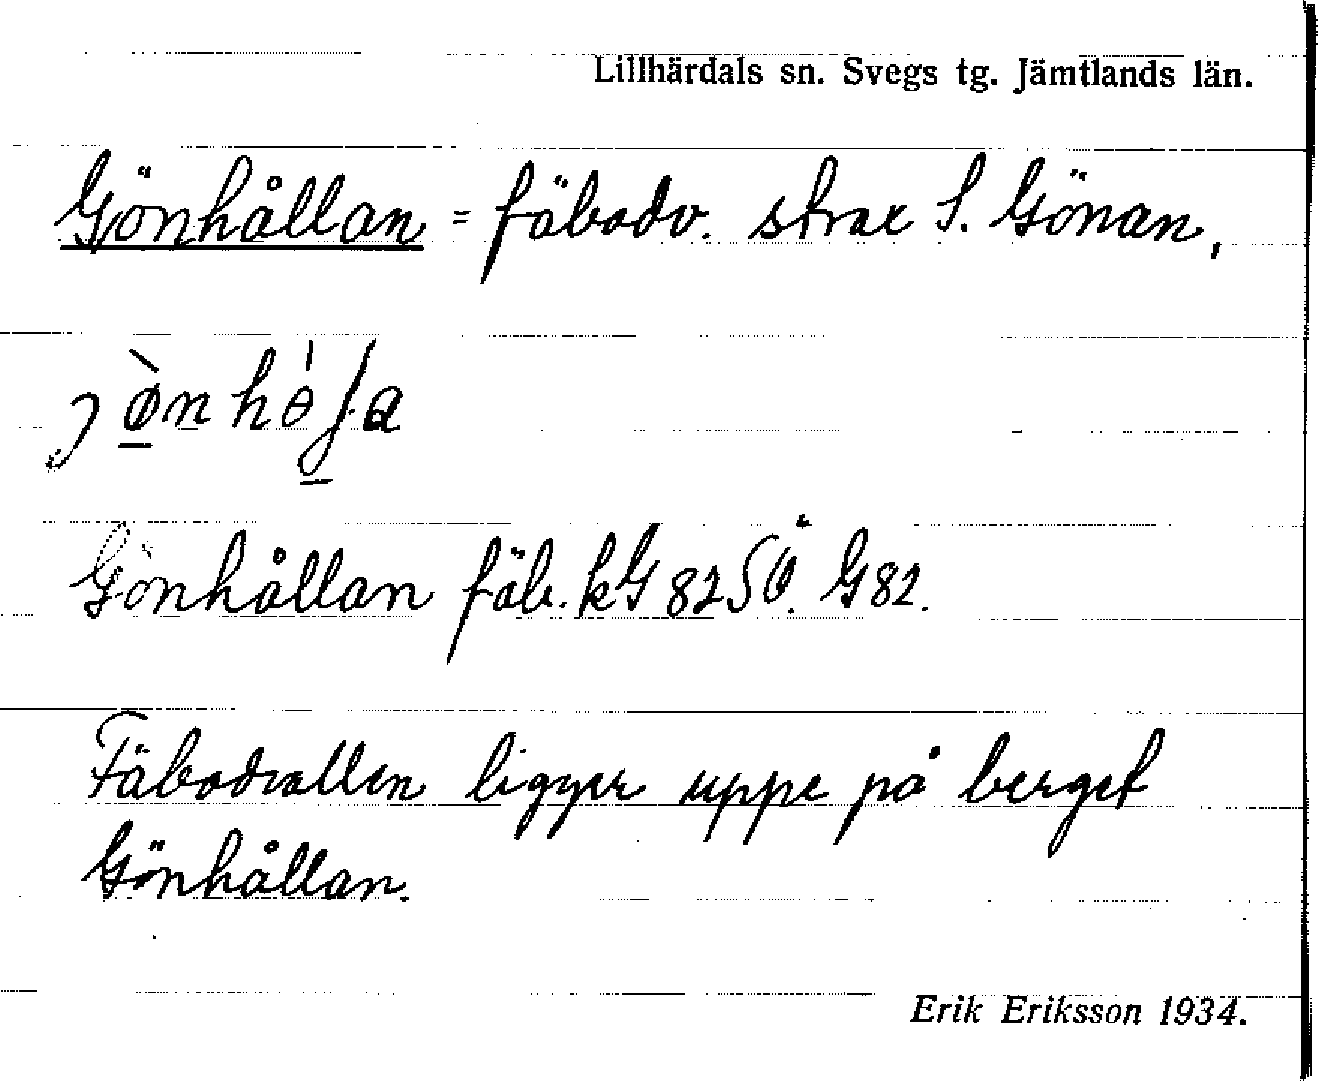 Lillhärdals sn. Svegs tg. Jämtlands län.
Gönhållan = fäbodv. strax S. Gönan,
Gönhållan fäb. kG 82 SÖ. G82.
Fäbodvallen ligger uppe på berget
Gönhållan.
Erik Eriksson 1934.